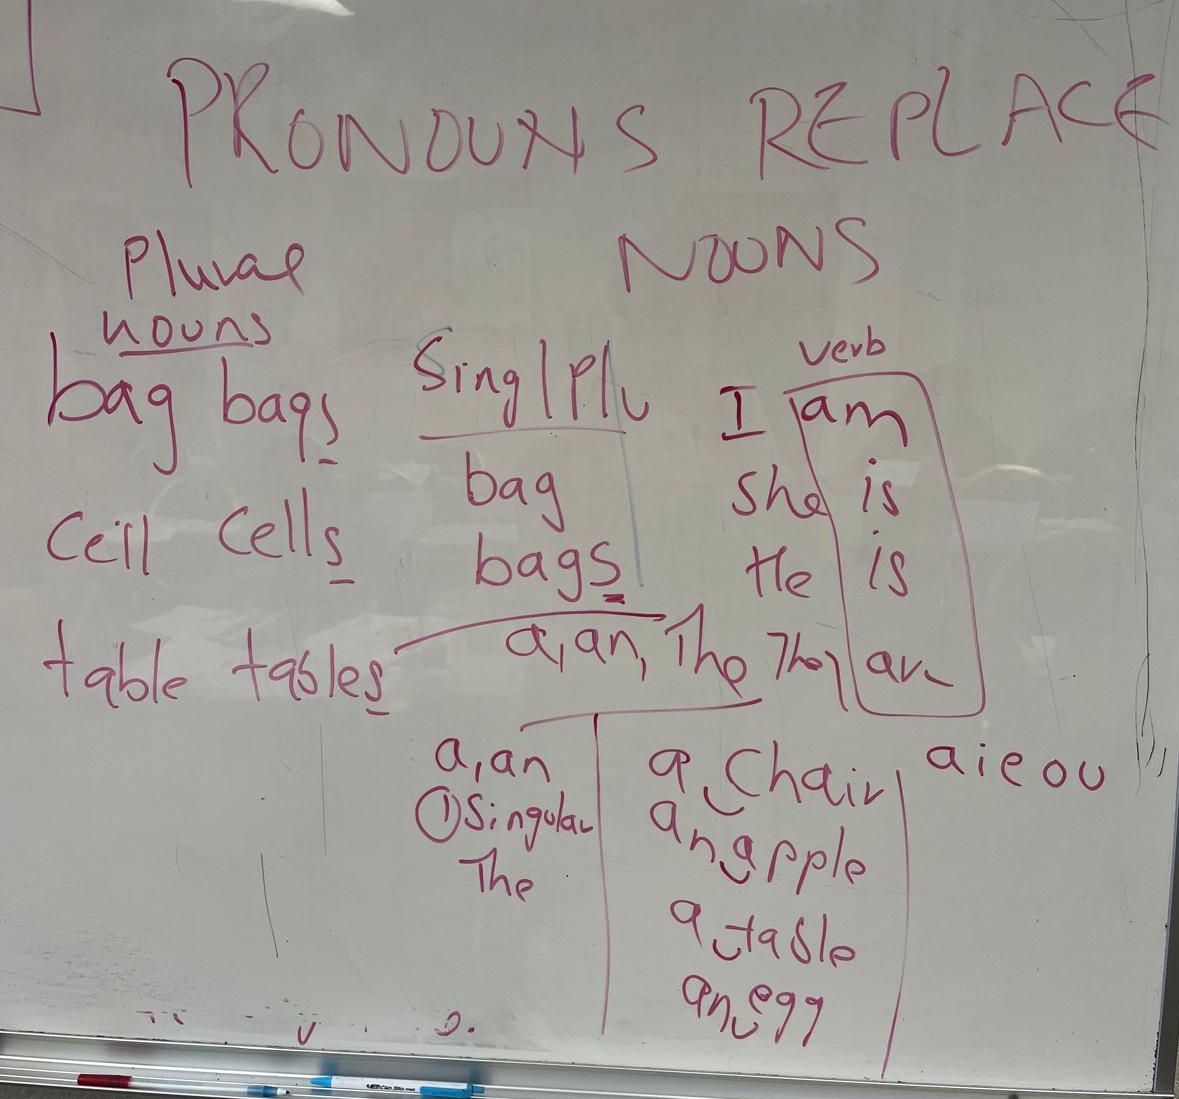 PRONOUNS REPLACE
NOUNS
Plural
nouns
bag bags
Cell Cells
table tables
Sing/Plu
bag
bags
a, an, The
verb
I am
She is
He is
They are
a, an
① Singular
The
a Chair
an apple
a table
an egg
a i e o u